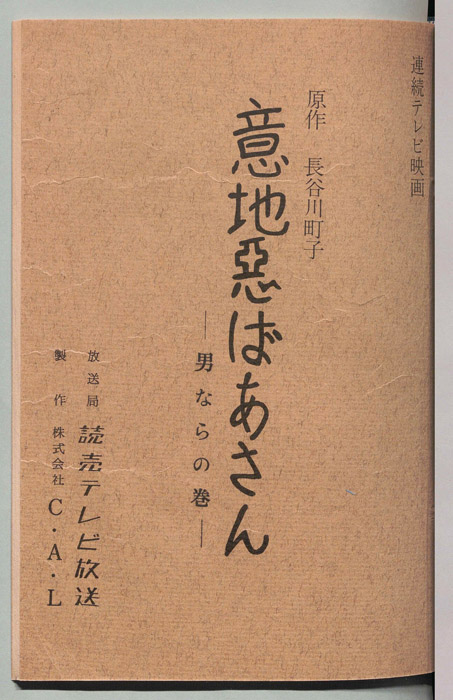 連続テレビ映画
原作 長谷川町子
意地悪ばあさん
―男ならの巻―
放送局 読売テレビ放送
製作 株式会社 C・A・L